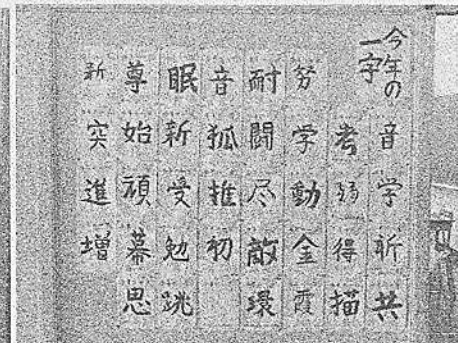 今年の
一字
音学祈共
考得描
努学動金霞
耐闘尽敵環
音狐推初
眠新受勉跳
尊始頑幕思
新突進増